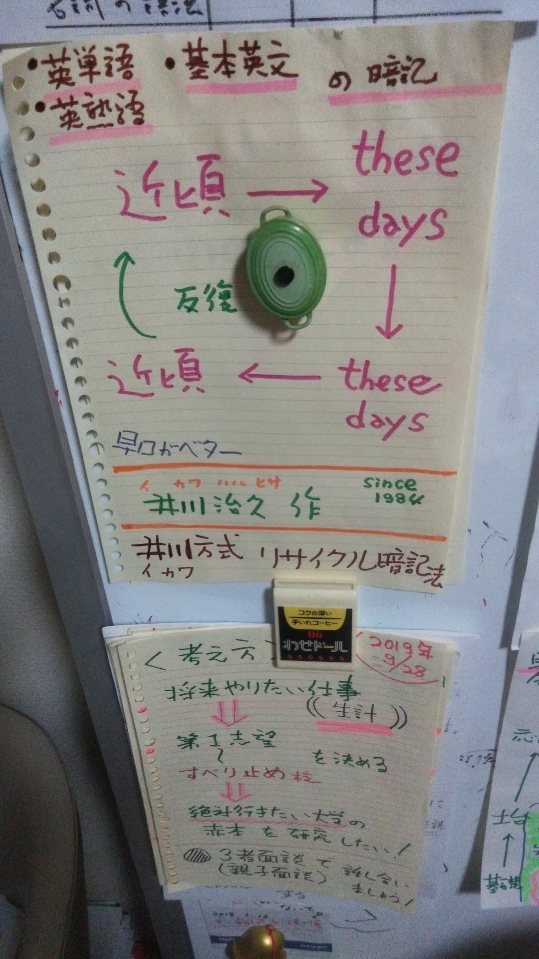 名詞の語法
・英単語 ・基本英文 の暗記
・英熟語
近頃 → these days
↓
these days
← 近頃
↑
反復
早口がベター
イカワ ハルヒサ
井川治久 作 since 1984
井川方式 リサイクル暗記法
イカワ
コクの深い
手いれコーヒー
わせドール
2019年 9/28
<考え方
将来やりたい仕事
((生計))
⇓
第1志望
〜 を決める
すべり止め校
⇓
絶対行きたい大学の
赤本を研究したい!
3者面談で
(親子面談) 話し合い
ましょう!